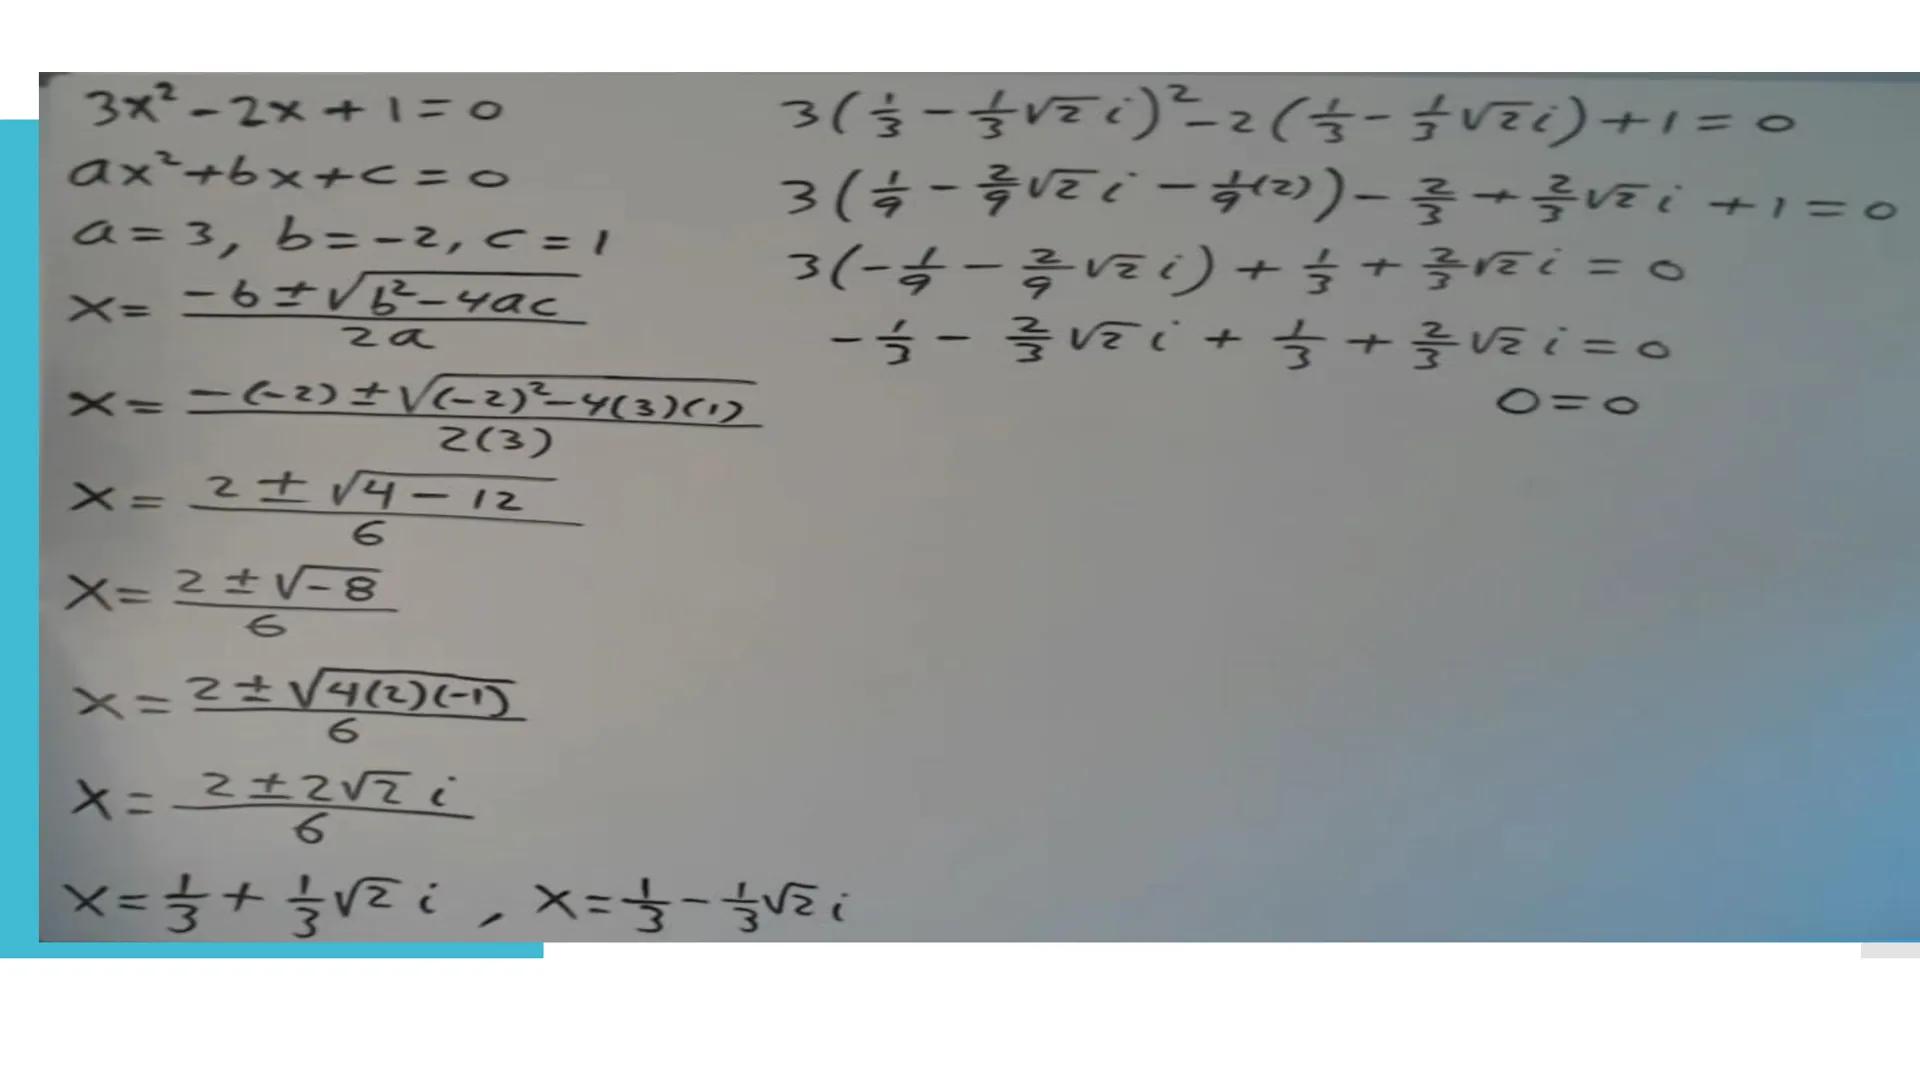 3x² - 2x + 1 = 0
ax² + bx + c = 0
a = 3, b = -2, c = 1
x = (-b ± √(b² - 4ac)) / 2a
x = (-(-2) ± √((-2)² - 4(3)(1))) / 2(3)
x = (2 ± √(4 - 12)) / 6
x = (2 ± √-8) / 6
x = (2 ± √(4(2)(-1))) / 6
x = (2 ± 2√2 i) / 6
x = 1/3 + 1/3 √2 i , x = 1/3 - 1/3 √2 i
3(1/3 - 1/3 √2 i)² - 2(1/3 - 1/3 √2 i) + 1 = 0
3(1/9 - 2/9 √2 i - 1/9 (2)) - 2/3 + 2/3 √2 i + 1 = 0
3(-1/9 - 2/9 √2 i) + 1/3 + 2/3 √2 i = 0
-1/3 - 2/3 √2 i + 1/3 + 2/3 √2 i = 0
0 = 0